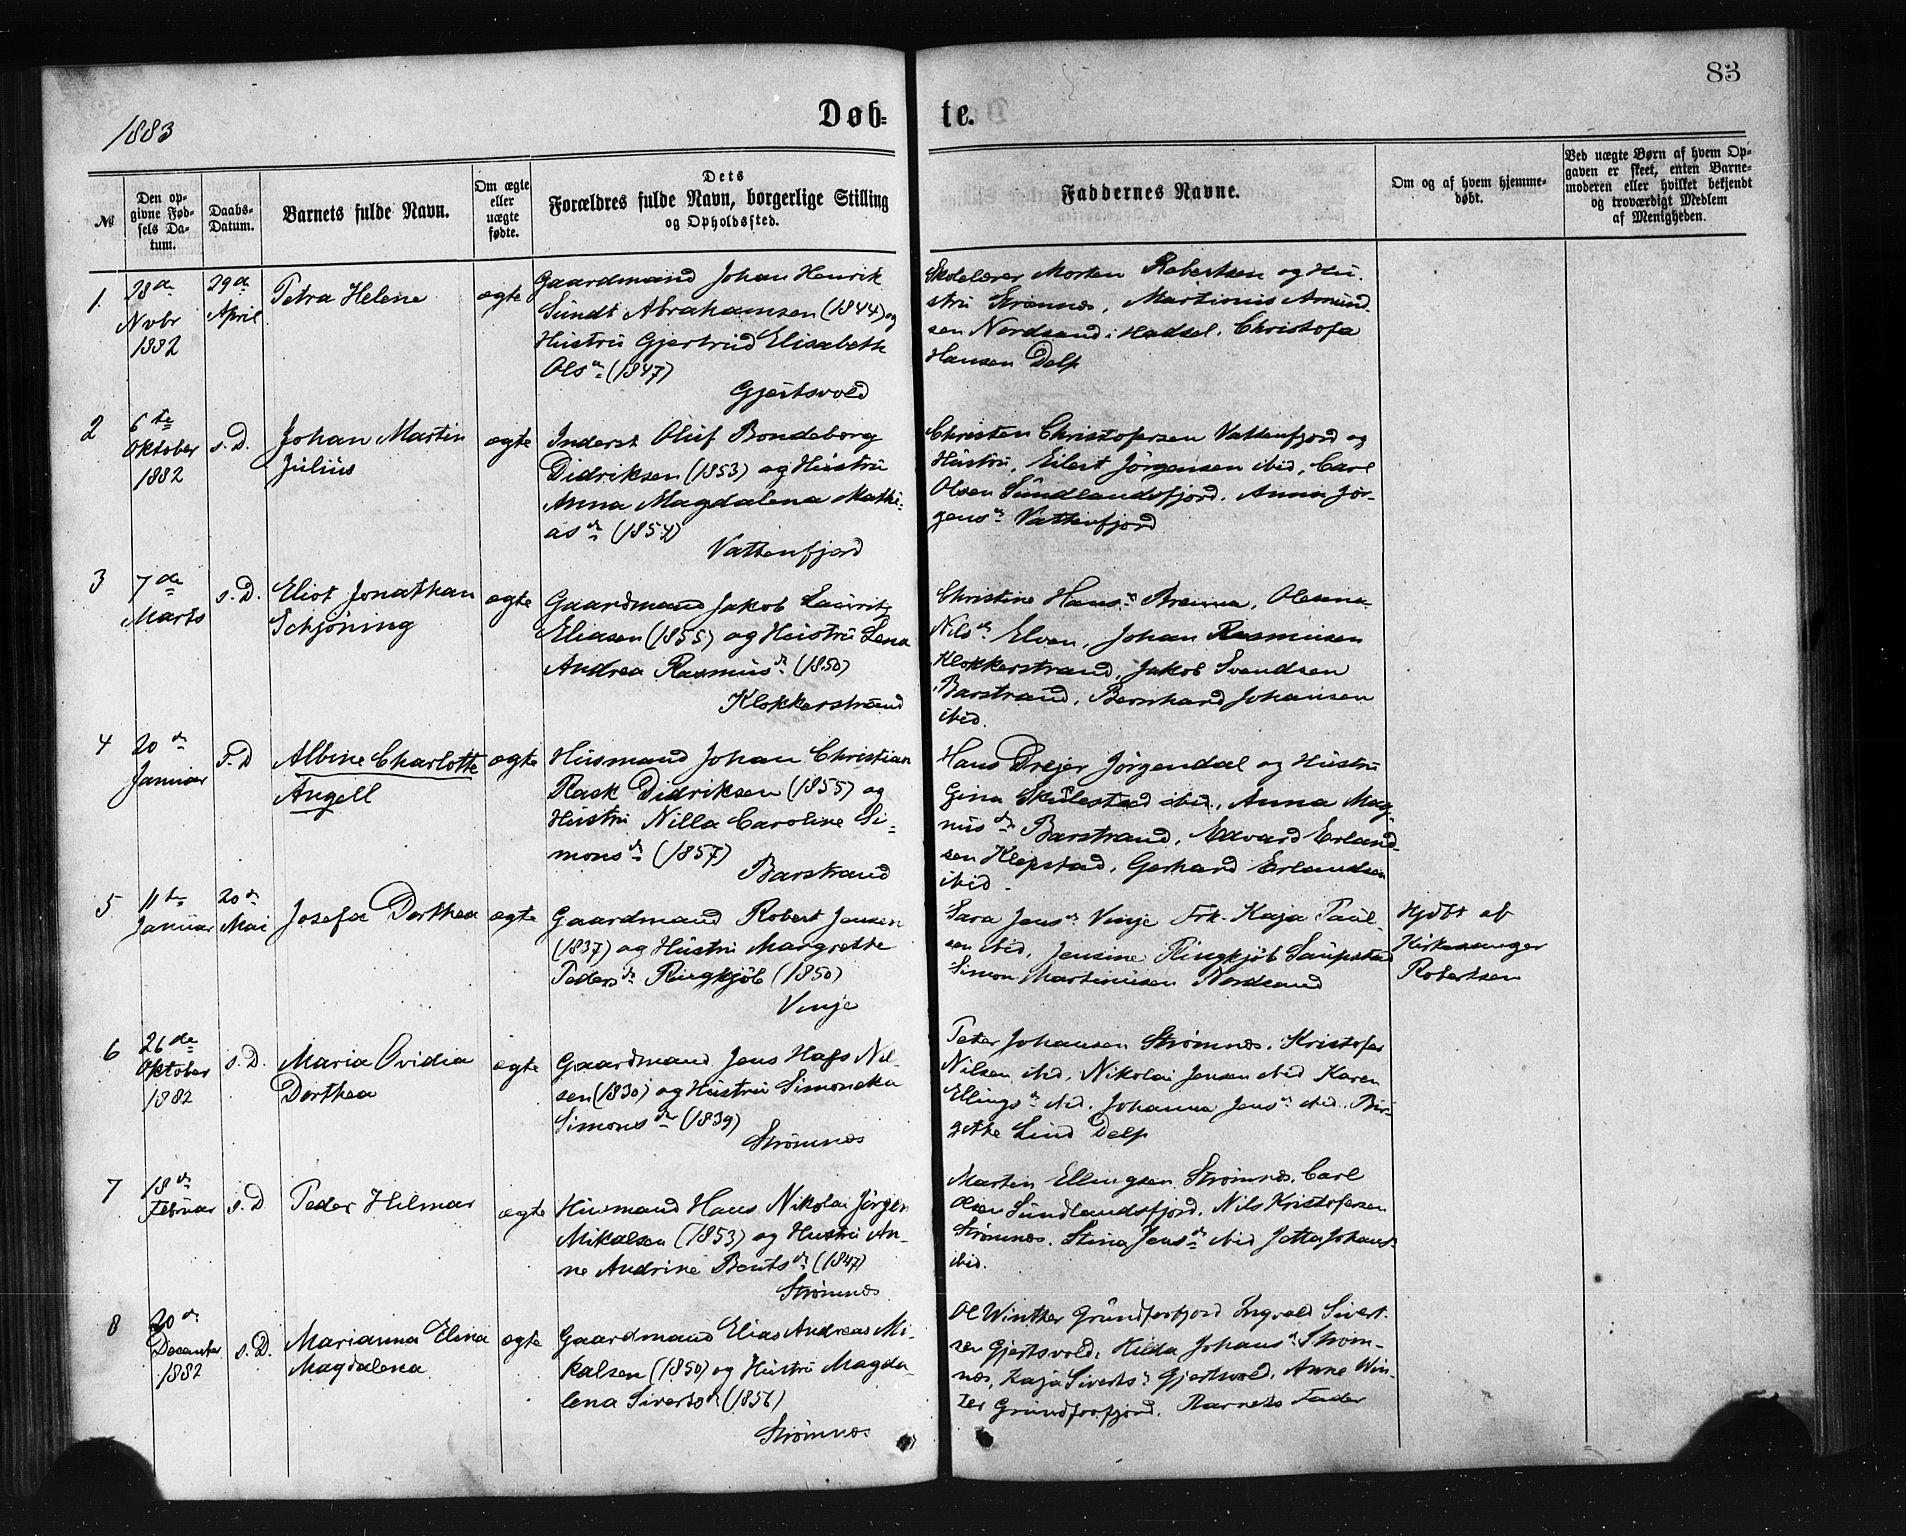 83
1883
Døb= te.
№
Den op-
givne Fød-
sels Da-
tum.
Daabs-
Datum.
Barnets fulde Navn.
Om ægte
eller
uægte
fødte.
Dets
Forældres fulde Navn, borgerlige Stilling
og Opholdssted.
Faddernes Navne.
Om og af hvem hjemme-
døbt.
Ved uægte Børn af hvem Op-
gaven er skeet, enten Barne-
moderen eller hvilket bekjendt
og troværdigt Medlem
af Menigheden.
1
28de
Novbr
1882
29de
April
Petra Helene
ægte
Gaardmand Johan Henrik
Sundt Abrahamsen (1844) og
Hustru Gjertrud Elisabeth
Olsdr (1847)
Gjertsvold
Skolelærer Morten Robertsen og Hu-
stru Strømnæs, Martinus Amund-
sen Nordsand i Hadsel, Christofa
Hansen Delp
2
6te
Oktober
1882
s.D.
Johan Martin
Julius
ægte
Inderst Oluf Bondeborg
Didriksen (1853) og Hustru
Anna Magdalena Mathi-
asdr (1854)
Vattenfjord
Christen Christofersen Vattenfjord og
Hustru, Eilert Jørgensen ibid, Carl
Olsen Sundlandsfjord, Anna Jør-
gensdr Vattenfjord
3
7de
Marts
s.D.
Eliot Jonathan
Schjøning
ægte
Gaardmand Jakob Lauritz
Eliasen (1855) og Hustru Lena
Andrea Rasmusdr (1850)
Klokkerstrand
Christine Hansdr Brenna, Olena
Nilsdr Elven, Johan Rasmusen
Klokkerstrand, Jakob Svendsen
Barstrand, Bernhard Johansen
ibid.
4
20de
Januar
s.D
Albine Charlotte
Angell
ægte
Husmand Johan Christian
Rask Didriksen (1855) og
Hustru Nilla Caroline Si-
monsdr (1857)
Barstrand
Hans Drejer Jørgendal og Hustru
Gina Skulestad ibid, Anna Mag-
nusdr Barstrand, Edvard Erland-
sen Klepstad, Gerhard Erlandsen
ibid.
5
11te
Januar
20de
Mai
Josefa Dorthea
ægte
Gaardmand Robert Jensen
(1837) og Hustru Margrethe
Pedersdr Ringkjøb (1850)
Vinje
Sara Jensdr Vinje Frk. Kaja Paul-
sen ibid, Jensine Ringkjøb Saupstad
Simon Martinusen Nordsand
Hjdbt af
Kirkesanger
Robertsen
6
26de
Oktober
1882
s.D.
Maria Ovidia
Dorthea
ægte
Gaardmand Jens Hafs Nil-
sen (1830) og Hustru Simoneka
Simonsdr (1839)
Strømnæs
Peter Johansen Strømnæs, Kristofer
Nilsen ibid, Nikolai Jensen ibid Karen
Ellingsdr ibid. Johanna Jensdr ibid. Bir-
gitte Lind Delp
7
18de
Februar
s.D
Peder Hilmar
ægte
Husmand Hans Nikolai Jørgen
Mikalsen (1853) og Hustru An-
ne Andrine Bentsdr (1847)
Strømnæs
Martin Ellingsen Strømnæs, Carl
Olsen Sundlandsfjord, Nils Kristofersen
Strømnæs. Stina Jensdr ibid Jetta Johansdr
ibid.
8
20de
December
1882
s.D.
Marianna Elina
Magdalena
ægte
Gaardmand Elias Andreas Mi-
kalsen (1850) og Hustru Magda-
lena Sivertsdr (1856)
Strømnæs
Ol Winther Grundforfjord Ingvald Sivert-
sen Gjertsvold, Hilda Johansdr Strøm-
næs, Kaja Sivertsdr Gjertsvold, Anne Win-
ter Grundforfjord, Barnets Fader